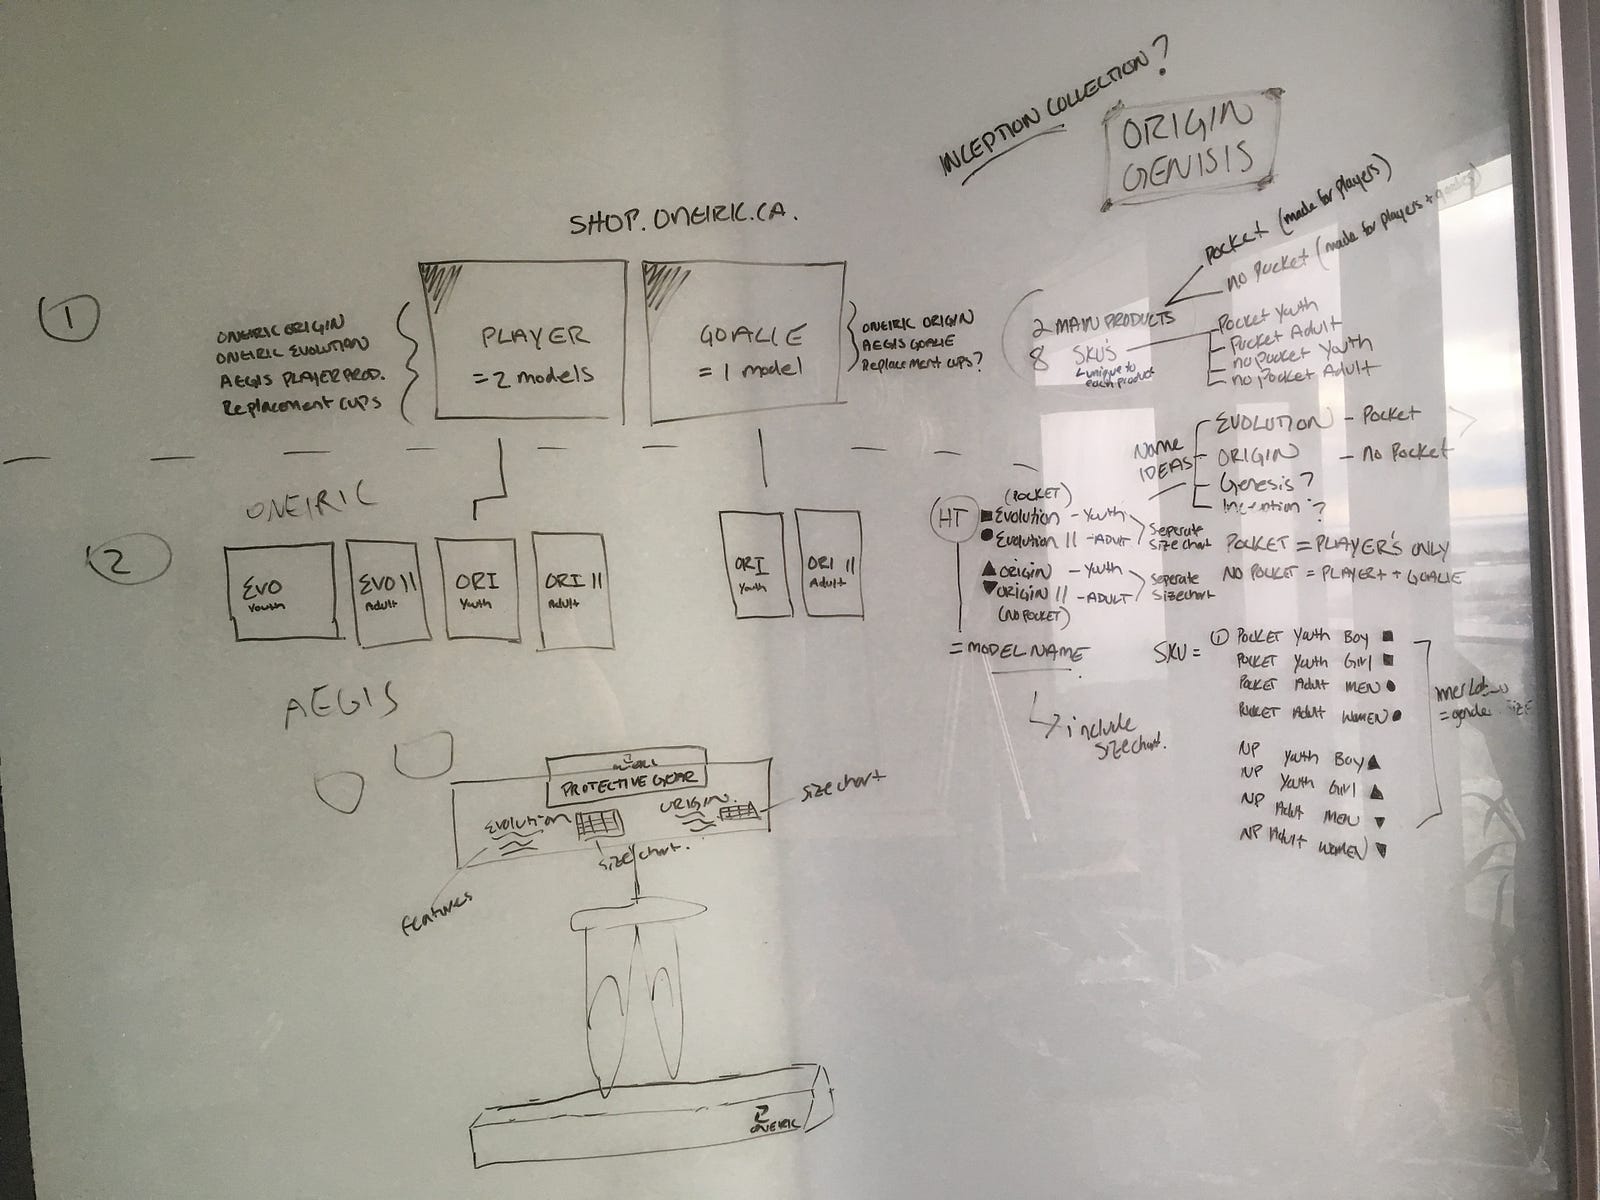 INCEPTION COLLECTION?
ORIGIN
GENISIS
SHOP.ONEIRIC.CA.
1
ONEIRIC ORIGIN
ONEIRIC EVOLUTION
AEGIS PLAYER PROD.
Replacement CUPS
PLAYER
= 2 models
GOALIE
= 1 model
ONEIRIC ORIGIN
AEGIS GOALIE
Replacement cups?
Pocket (made for players)
no Pocket (made for players + goalies)
2 MAIN PRODUCTS
8 SKU'S
unique to
each product
Pocket Youth
Pocket Adult
no Pocket Youth
no Pocket Adult
Name
IDEAS
EVOLUTION - Pocket
ORIGIN - no Pocket
Genesis?
Inception?
2
ONEIRIC
EVO
Youth
EVO II
Adult
ORI
Youth
ORI II
Adult
ORI
Youth
ORI II
Adult
HT
(POCKET)
Evolution - Youth
Evolution II - ADULT
Seperate
Size chart
ORIGIN - Youth
ORIGIN II - ADULT
(NO POCKET)
Seperate
Sizechart
= MODEL NAME
include
Sizechart.
POCKET = PLAYER'S ONLY
NO POCKET = PLAYER + GOALIE
SKU =
1 POCKET Youth Boy
POCKET Youth Girl
POCKET Adult MEN
POCKET Adult WOMEN
NP Youth Boy
NP Youth Girl
NP Adult MEN
NP Adult WOMEN
= gender size
AEGIS
PROTECTIVE GEAR
Evolution
ORIGIN
Sizechart
Size chart.
features
ONEIRIC